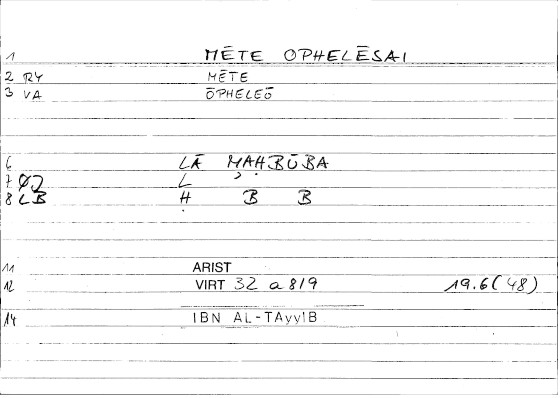 1 MĒTE OPHELĒSAI
2 RY MĒTE
3 VA ŌPHELEŌ
6 LĀ MAḤBŪBA
7 ØJ L
8 LB Ḥ B B
11 ARIST
12 VIRT 32 a 8/9 19.6(48)
14 IBN AL-TAyyIB